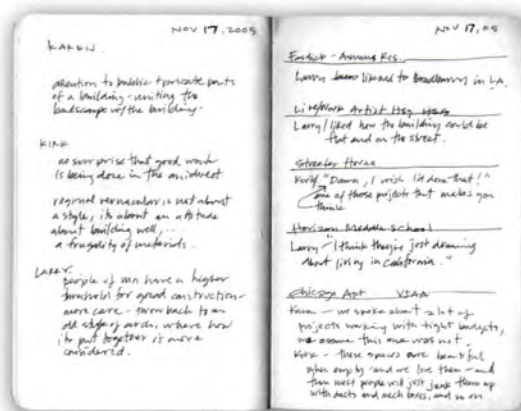 NOV 17, 2005
KAREN
attention to public + private parts
of a building - uniting the
landscape w/ the building.
KIRK
no surprise that good work
is being done in the midwest
regional vernacular is not about
a style, its about an attitude
about building well, ...
a frugality of materials.
LARRY.
people of mn have a higher
threshold for good construction -
more care - throw back to an
old style of arch. where how
its put together is more
considered.
NOV 17, 05
Res.
Larry likened to Bradbury in LA.
Live/Work Artist Hsg
Larry / liked how the building could be
flat and on the street.
House
Kirk / "Damn, I wish I'd done that!"
one of those projects that makes you
think
Horizon Middle School
Larry - "I think they're just dreaming
about living in California."
Chicago Apt VJAA
Karen - we spoke about a lot of
projects working with tight budgets,
we assume this one was not.
Kirk - these spaces are beautiful
when empty - and we love them - and
then most people will just junk them up
with ducts and mech boxes, and so on